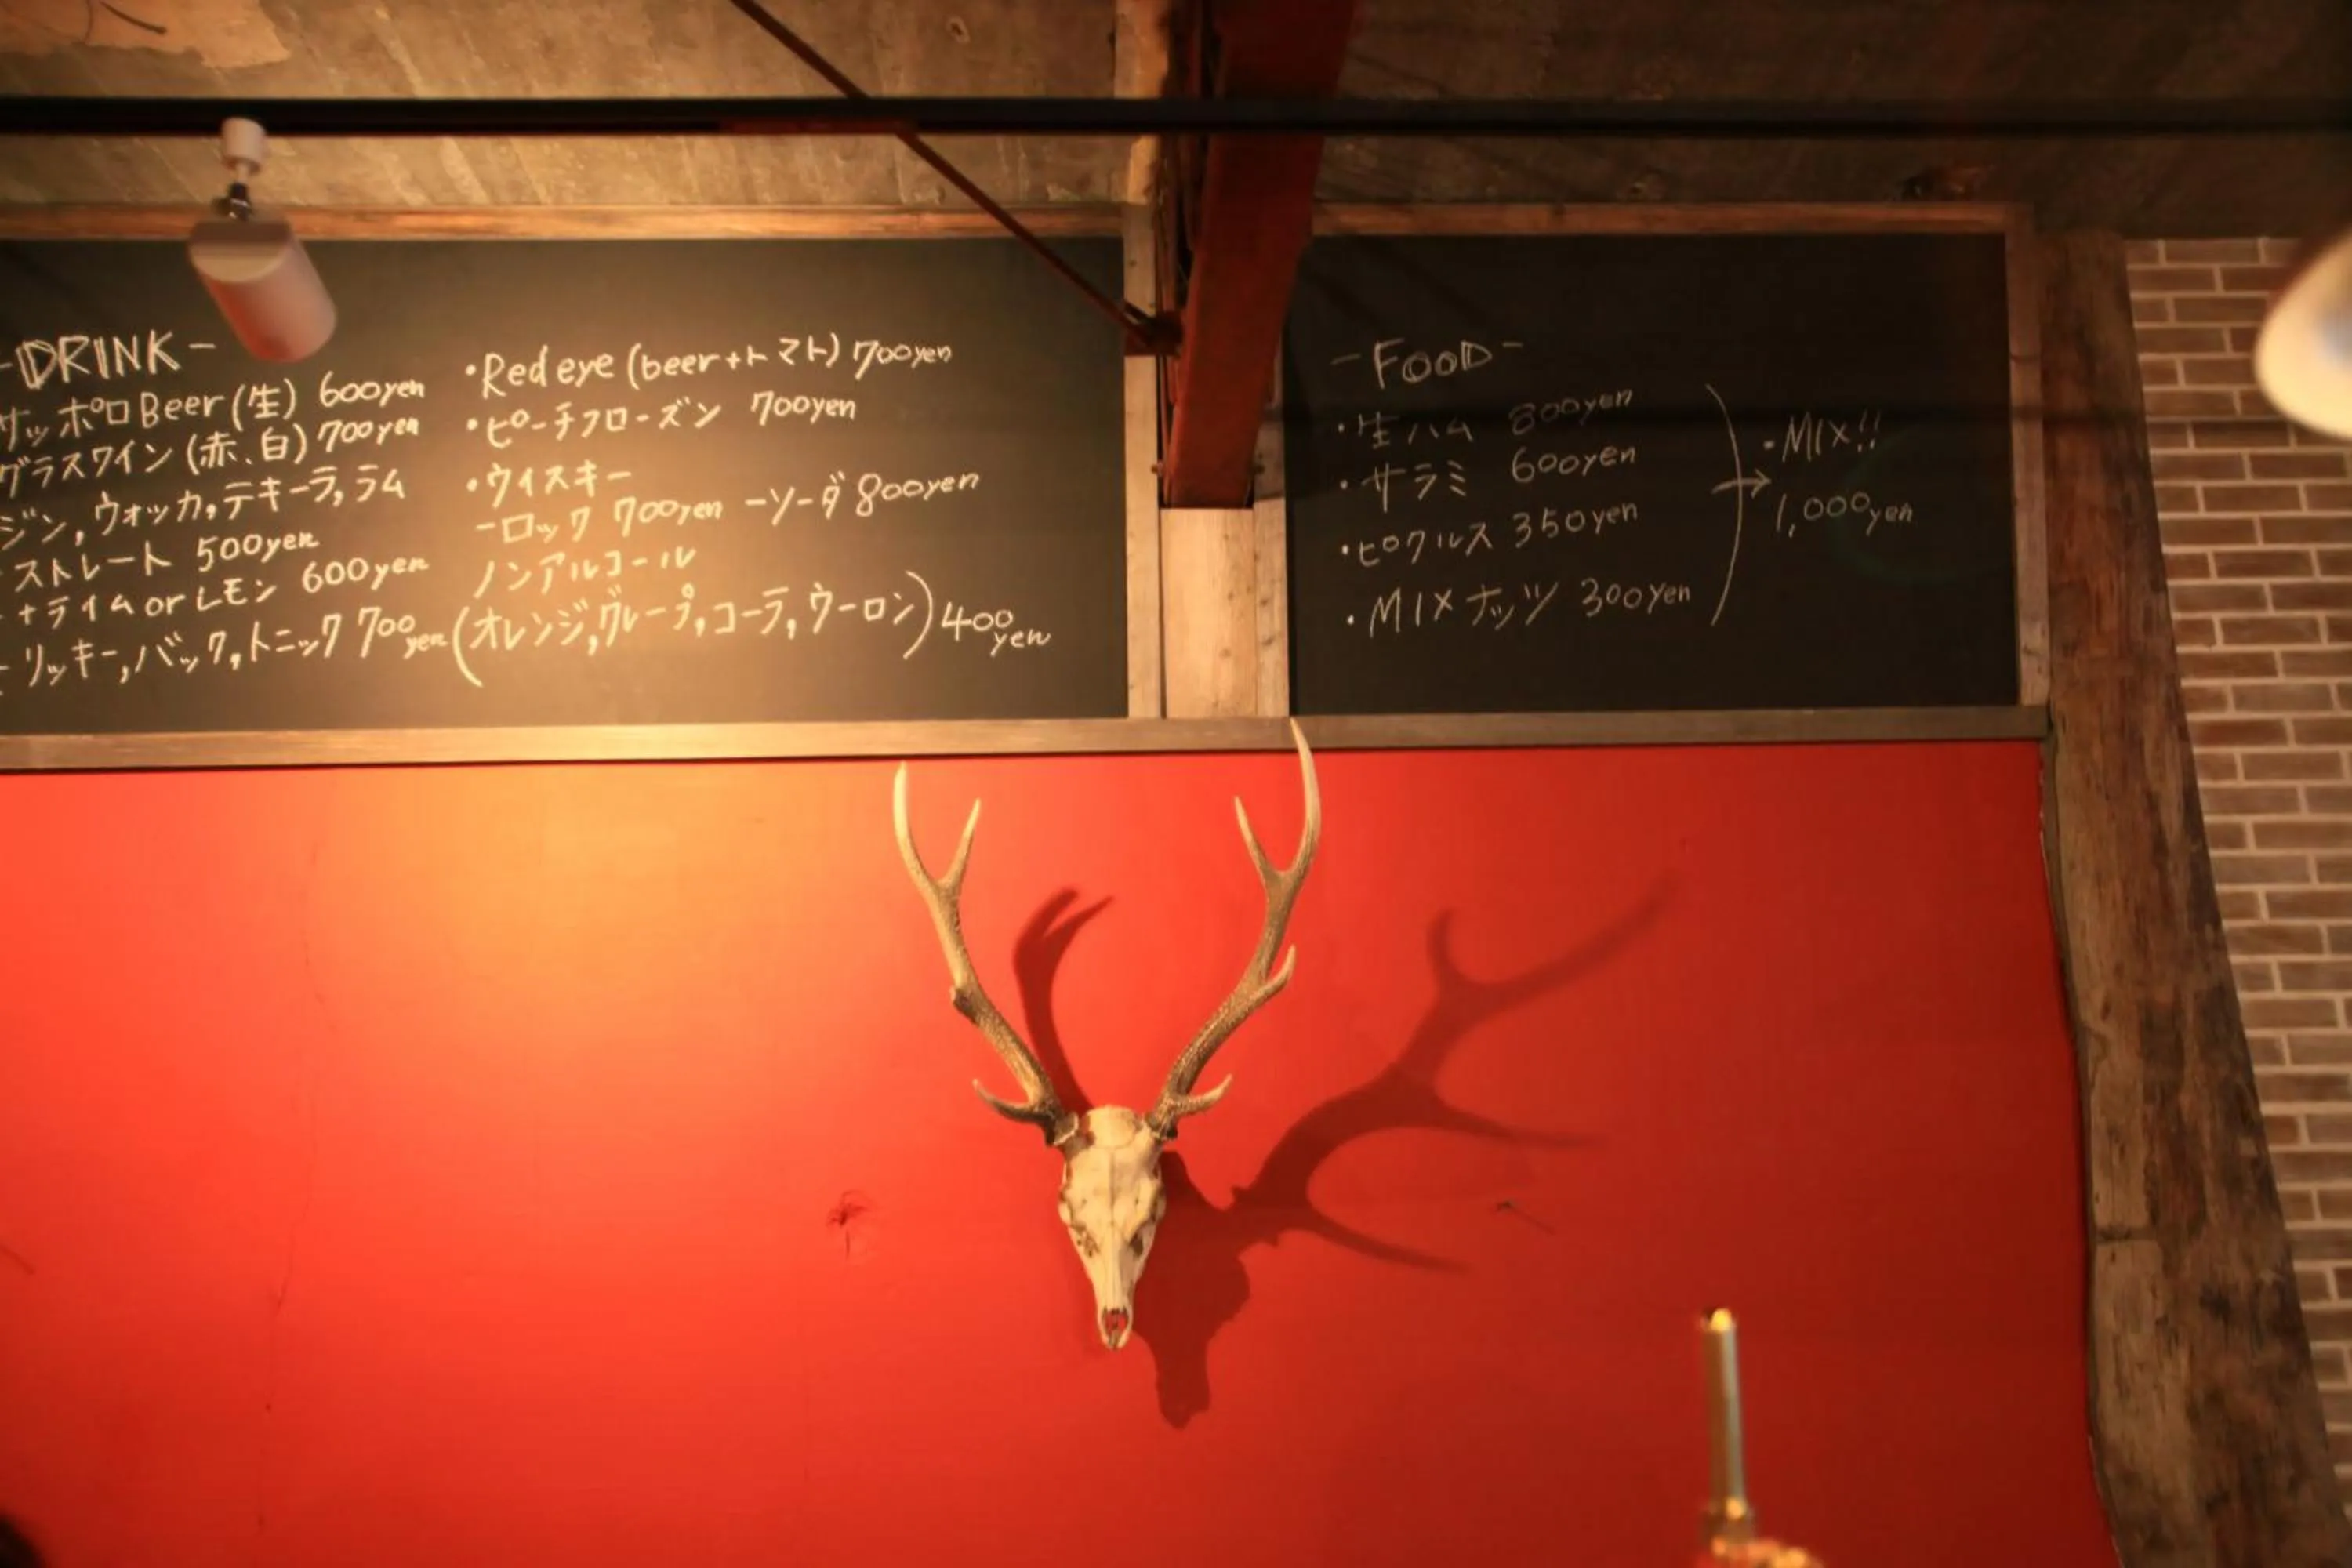 -DRINK-
サッポロBeer(生) 600yen
グラスワイン(赤、白)700yen
ジン,ウォッカ,テキーラ,ラム
ストレート 500yen
+ライム or レモン 600yen
- リッキー,バック,トニック 700yen
・Red eye (beer+トマト) 700yen
・ピーチフローズン 700yen
・ウイスキー
-ロック 700yen -ソーダ 800yen
ノンアルコール
(オレンジ,グレープ,コーラ,ウーロン) 400yen
-FOOD-
・生ハム 800yen
・サラミ 600yen
・ピクルス 350yen
・MIXナッツ 300yen
・MIX!!
1,000yen